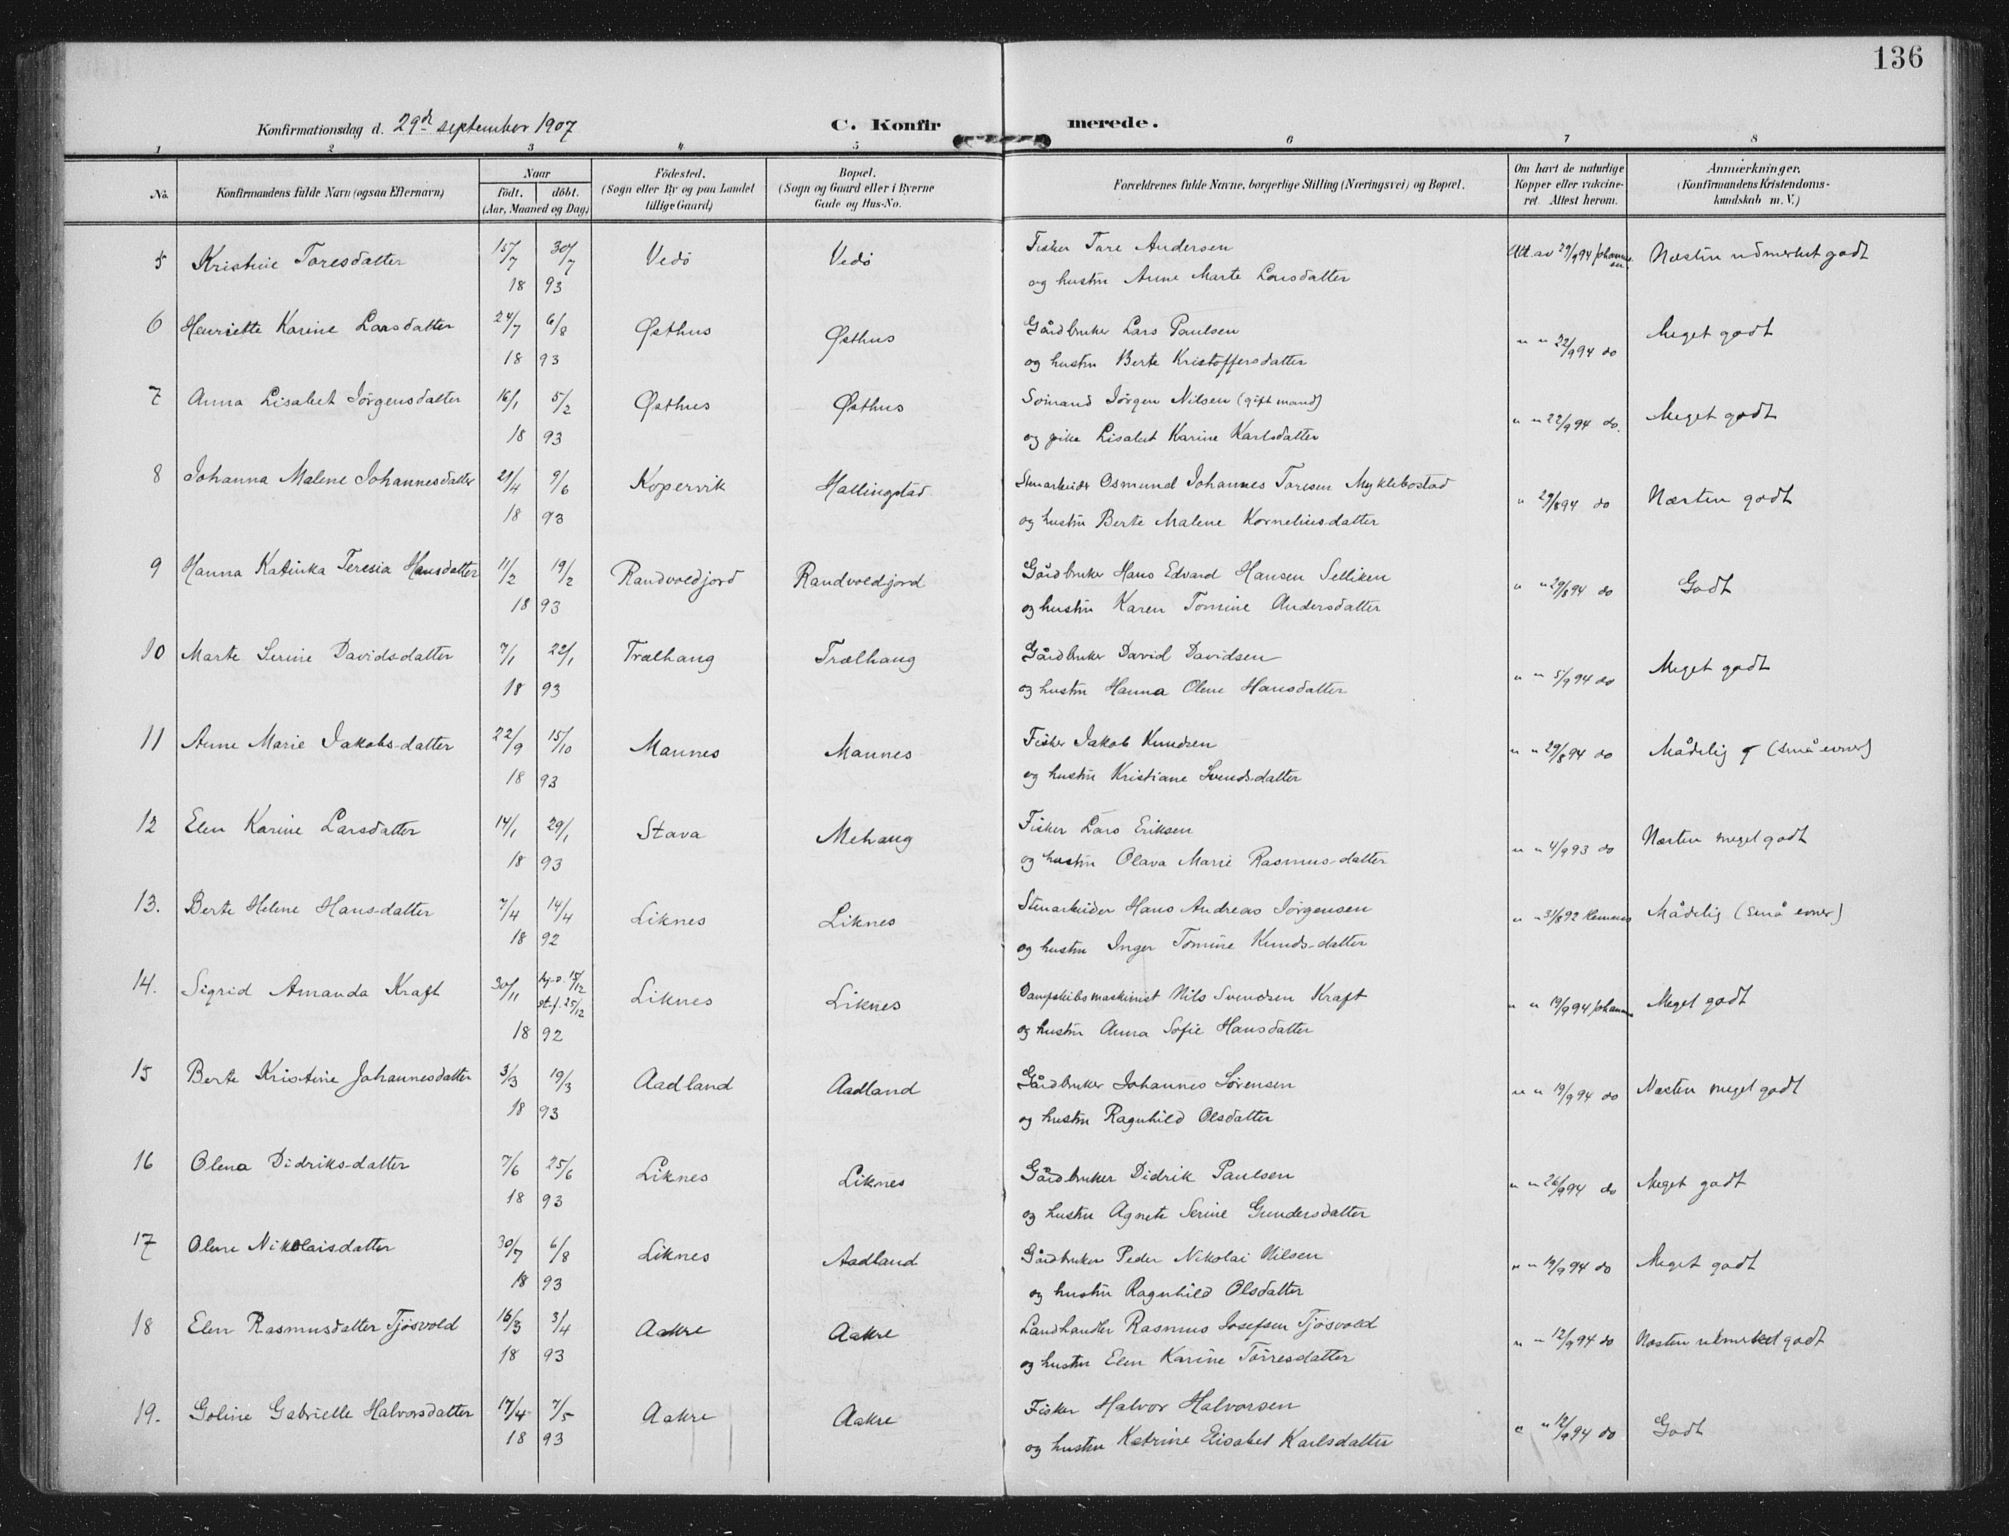 136
Konfirmationsdag d. 29de september 1907 C. Konfir merede.
1 2 3 4 5 6 7 8
No. Konfirmandens fulde Navn (ogsaa Efternavn) Naar födt. döbt. (Aar, Maaned og Dag) Födested. (Sogn eller By og paa Landet tillige Gaard) Bopæl. (Sogn og Gaard eller i Byerne Gade og Hus-No. Forældrenes fulde Navne, borgerlige Stilling (Næringsvei) og Bopæl. Om havt de naturlige Kopper eller vakcineret. Attest herom. Anmærkninger. (Konfirmandens Kristendomskundskab m. V.)
5 Kristine Toresdatter 15/7 30/7 Vedö Vedö Fisker Tore Andersen Att. av 29/9 94 Johannessen Næsten udmerket godt
18 93 og hustru Anne Marte Larsdatter
6 Henriette Karine Larsdatter 24/7 6/8 Østhus Østhus Gårdbruker Lars Paulsen " " 22/9 94 do Meget godt
18 93 og hustru Berte Kristoffersdatter
7 Anna Lisabet Jørgensdatter 16/1 5/2 Østhus Østhus Sømand Jørgen Nilsen (gift mand) " " 22/9 94 do. Meget godt
18 93 og pike Lisabet Karine Karlsdatter
8 Johanna Malene Johannesdatter 21/4 9/6 Kopervik Hallingstad Stenarbeider Osmund Johannes Toresen Myklebostad " 29/8 94 do Næsten godt
18 93 og hustru Berte Malene Korneliusdatter
9 Hanna Katinka Teresia Hansdatter 11/2 19/2 Randvoldjord Randvoldjord Gårdbruker Hans Edvard Hansen Selliken " " 29/8 94 do Godt
18 93 og hustru Karen Tomine Andersdatter
10 Marte Serine Davidsdatter 7/1 22/1 Trælhaug Trælhaug Gårdbruker David Davidsen " " 5/9 94 do Meget godt
18 93 og hustru Hanna Olene Hansdatter
11 Anne Marie Jakobs-datter 22/9 15/10 Mannes Mannes Fisker Jakob Knudsen " " 29/8 94 do Mådelig (små evner)
18 93 og hustru Kristiane Svendsdatter
12 Elen Karine Larsdatter 14/1 29/1 Stava Mehaug Fisker Lars Eriksen " " 4/9 93 do Næsten meget godt
18 93 og hustru Olava Marie Rasmus-datter
13. Berte Helene Hans-datter 7/4 14/4 Liknes Liknes Stenarbeider Hans Andreas Jørgensen " " 31/8 92 Mådelig (små evner)
18 92 og hustru Inger Tomine Knuds-datter
14. Sigrid Amanda Kraft 30/11 hj.d. 15/12 st.f. 25/12 Liknes Liknes Dampskibsmaskinist Nils Svendsen Kraft " " 19/9 94 Johannes Meget godt
18 92 og hustru Anna Sofie Hansdatter
15 Berte Kristine Johannesdatter 3/3 19/3 Aadland Aadland Gårdbruker Johannes Sørensen " " 19/9 94 do Næsten meget godt
18 93 og hustru Ragnhild Olsdatter
16 Olena Didriks-datter 7/6 25/6 Liknes Liknes Gårdbruker Didrik Paulsen " " 26/9 94 do Meget godt
18 93 og hustru Agnete Serine Gundersdatter
17 Olene Nikolaisdatter 30/7 6/8 Liknes Aadland Gårdbruker Peder Nikolai Nilsen " " 19/9 94 do Meget godt
18 93 og hustru Ragnhild Olsdatter
18 Elen Rasmusdatter Tjøsvold 16/3 3/4 Aakre Aakre Landhandler Rasmus Josefsen Tjøsvold " " 12/9 94 do Næsten udmerket godt
18 93 og hustru Elen Karine Torresdatter
19. Goline Gabrielle Halvorsdatter 17/4 7/5 Aakre Aakre Fisker Halvor Halvorsen " " 12/9 94 do Godt
18 93 og hustru Katrine Elisabet Karlsdatter